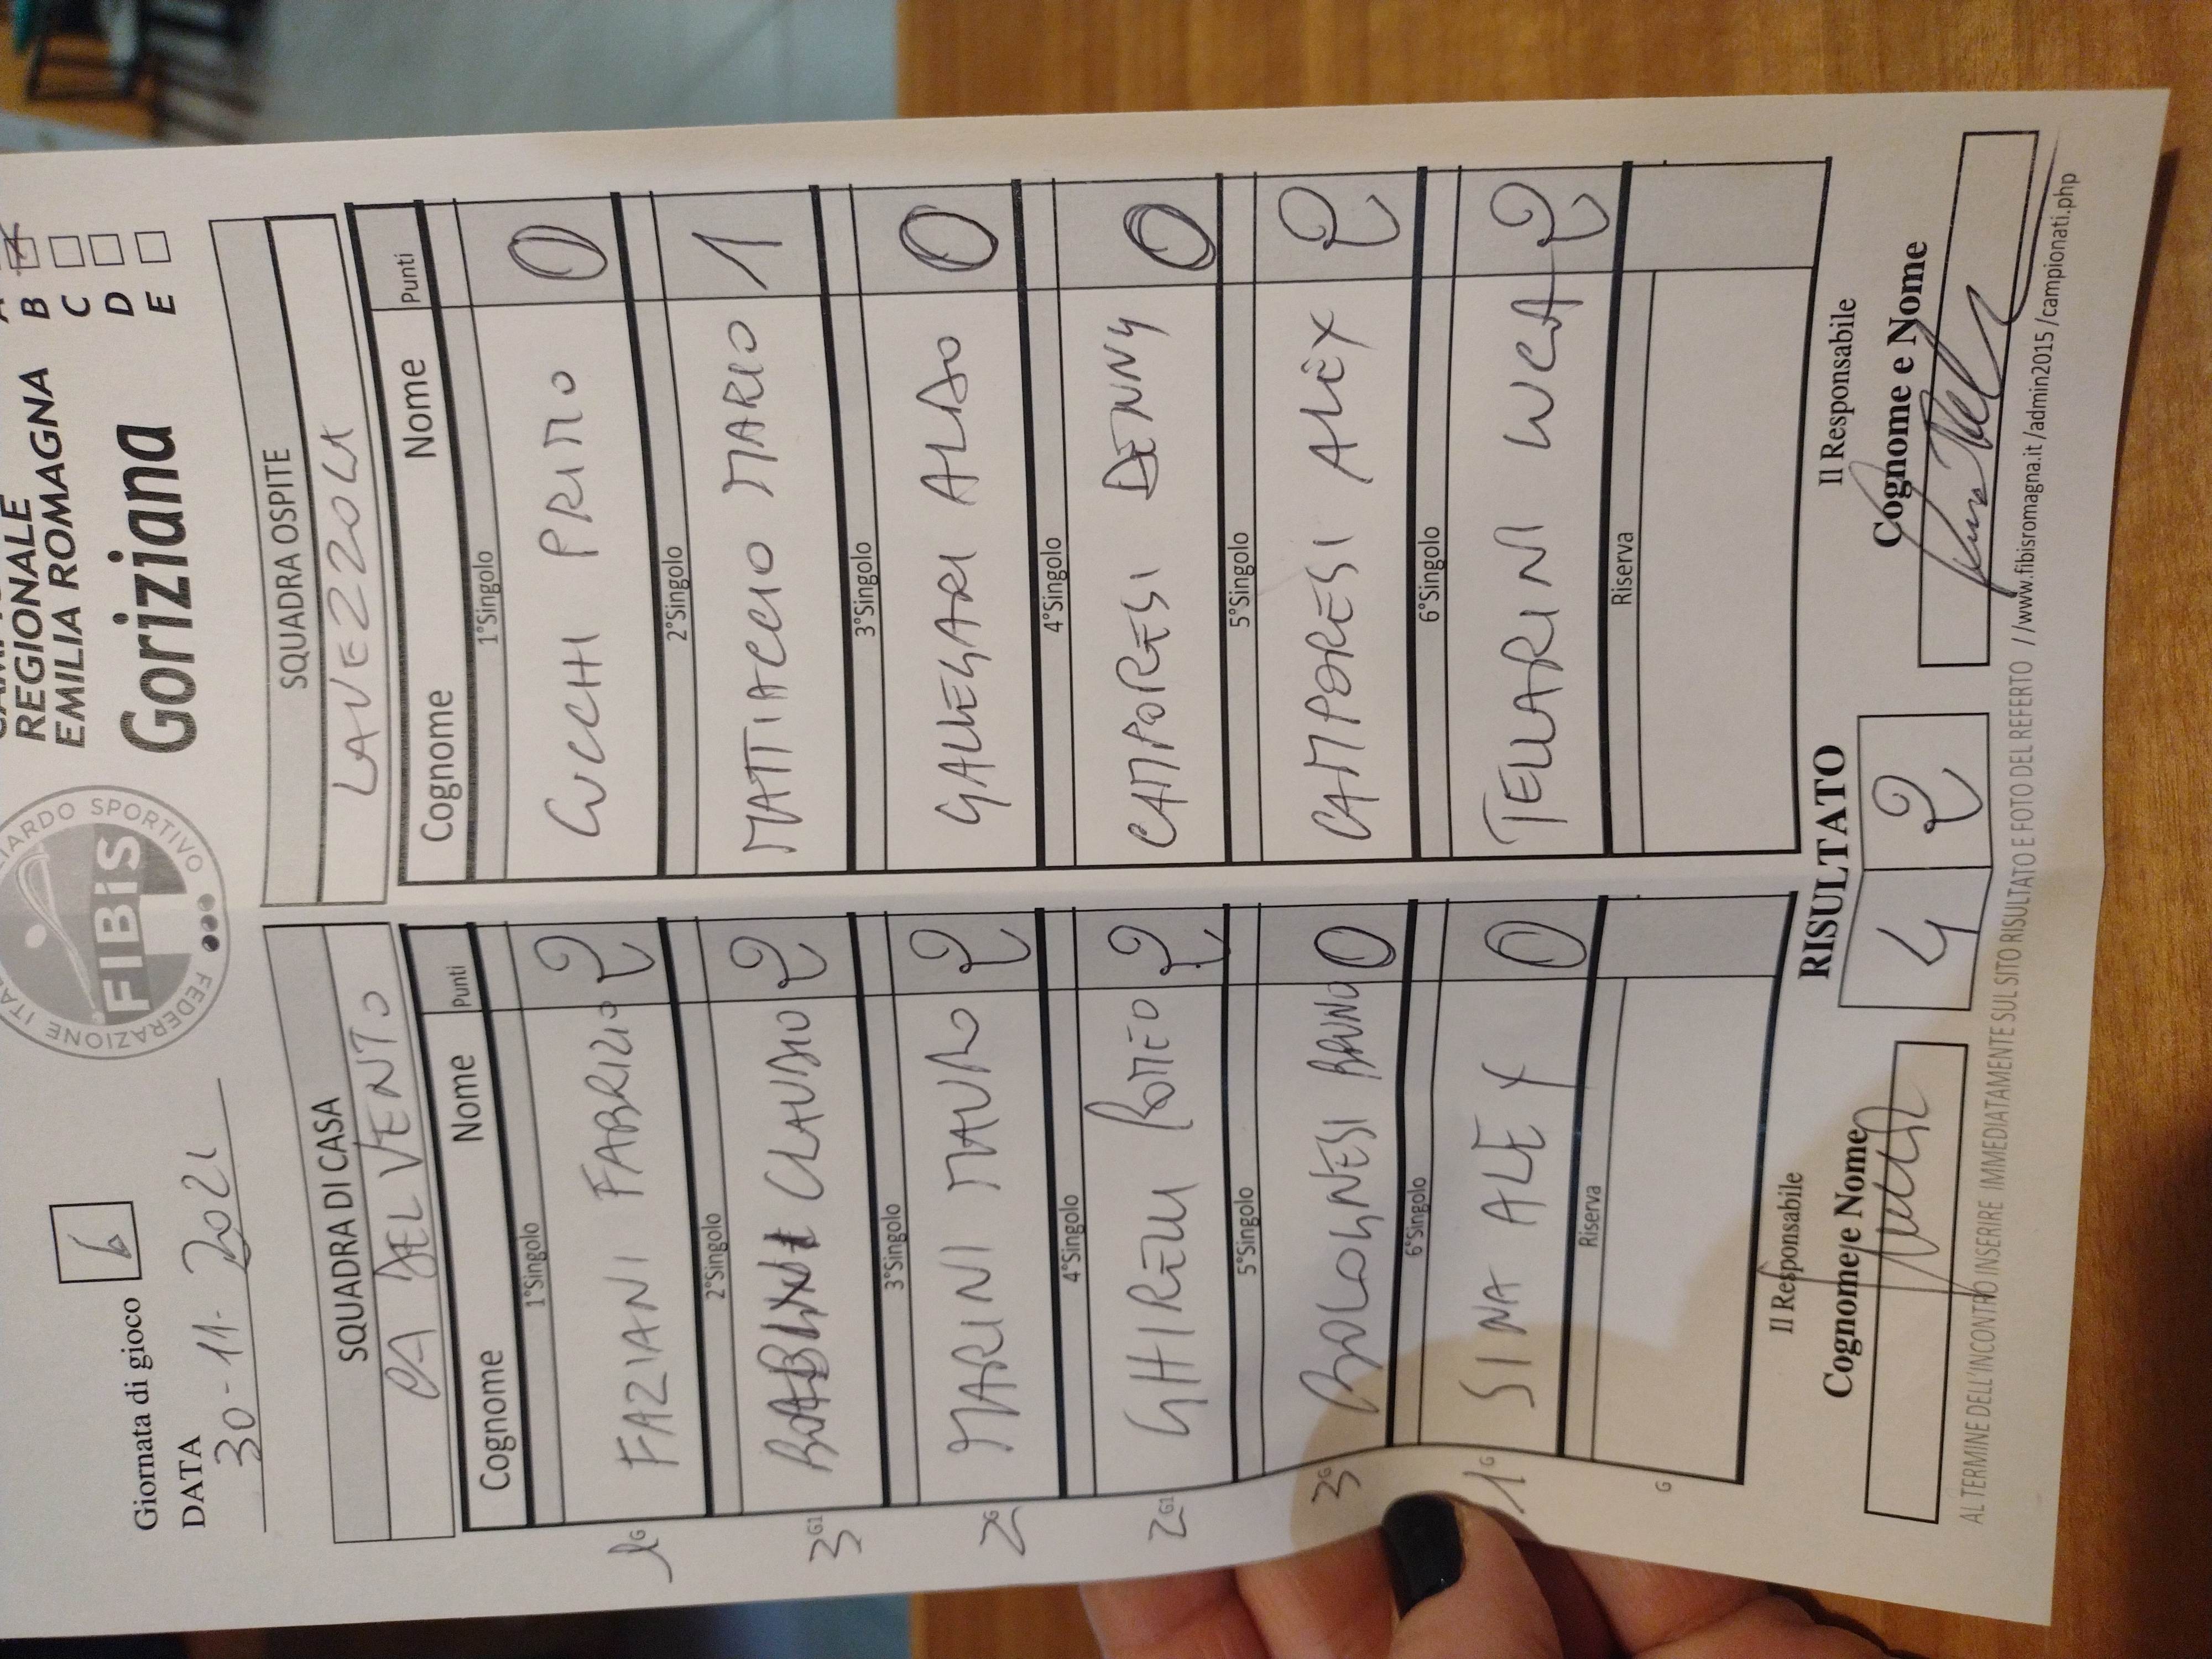 REGIONALE
EMILIA ROMAGNA
Goriziana
A
B
C
D
E
FEDERAZIONE ITA
LIARDO SPORTIVO
FIBiS
Giornata di gioco 6
DATA
30-11-2021
SQUADRA DI CASA
CA DEL VENTO
Cognome Nome Punti
1°Singolo
FAZIANI FABRIZIO 2
1 G
2°Singolo
CLAUDIO 2
3 G1
3°Singolo
MARINI MAURO 2
2 G
4°Singolo
GHIRELLI ROMEO 2
2 G1
5°Singolo
BOLOGNESI BRUNO 0
3 G
6°Singolo
SINA ALEX 0
1 G
Riserva
G
SQUADRA OSPITE
LAVEZZOLA
Cognome Nome Punti
1°Singolo
CUCCHI PRIMO 0
2°Singolo
MATTIACCIO MARIO 1
3°Singolo
GALLEGARI ALDO 0
4°Singolo
CAMPORESI DENNY 0
5°Singolo
CAMPORESI ALEX 2
6°Singolo
TELLARINI LUCA 2
Riserva
Il Responsabile
Cognome e Nome
RISULTATO
4 2
Il Responsabile
Cognome e Nome
AL TERMINE DELL'INCONTRO INSERIRE IMMEDIATAMENTE SUL SITO RISULTATO E FOTO DEL REFERTO //www.fibisromagna.it/admin2015/campionati.php